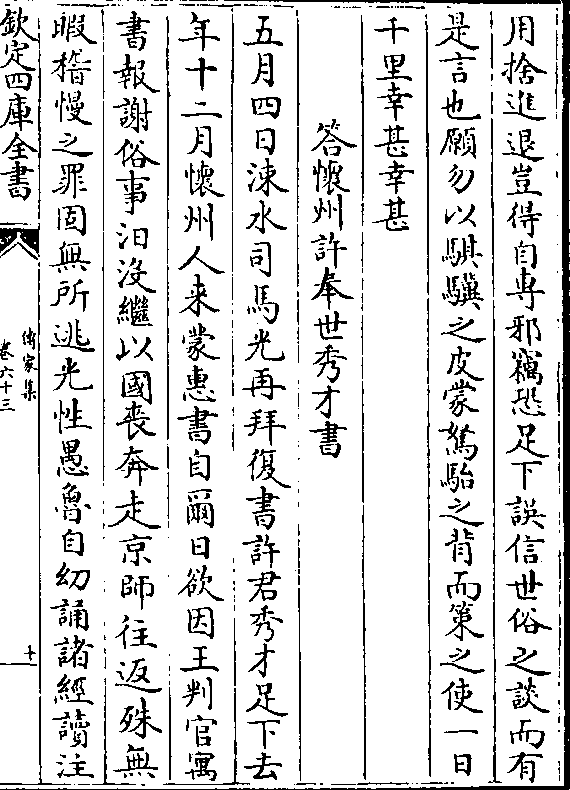 用捨進退豈得自專邪竊恐足下誤信世俗之談而有
是言也願勿以騏驥之皮蒙駑駘之背而策之使一日
千里幸甚幸甚
答懷州許奉世秀才書
五月四日涑水司馬光再拜復書許君秀才足下去
年十二月懷州人来蒙惠書自爾日欲因王判官寓
書報謝俗事汨沒繼以國喪奔走京師往返殊無
暇稽慢之罪固無所逃光性愚魯自幼誦諸經讀注
欽定四庫全書
傳家集
卷六十三
十